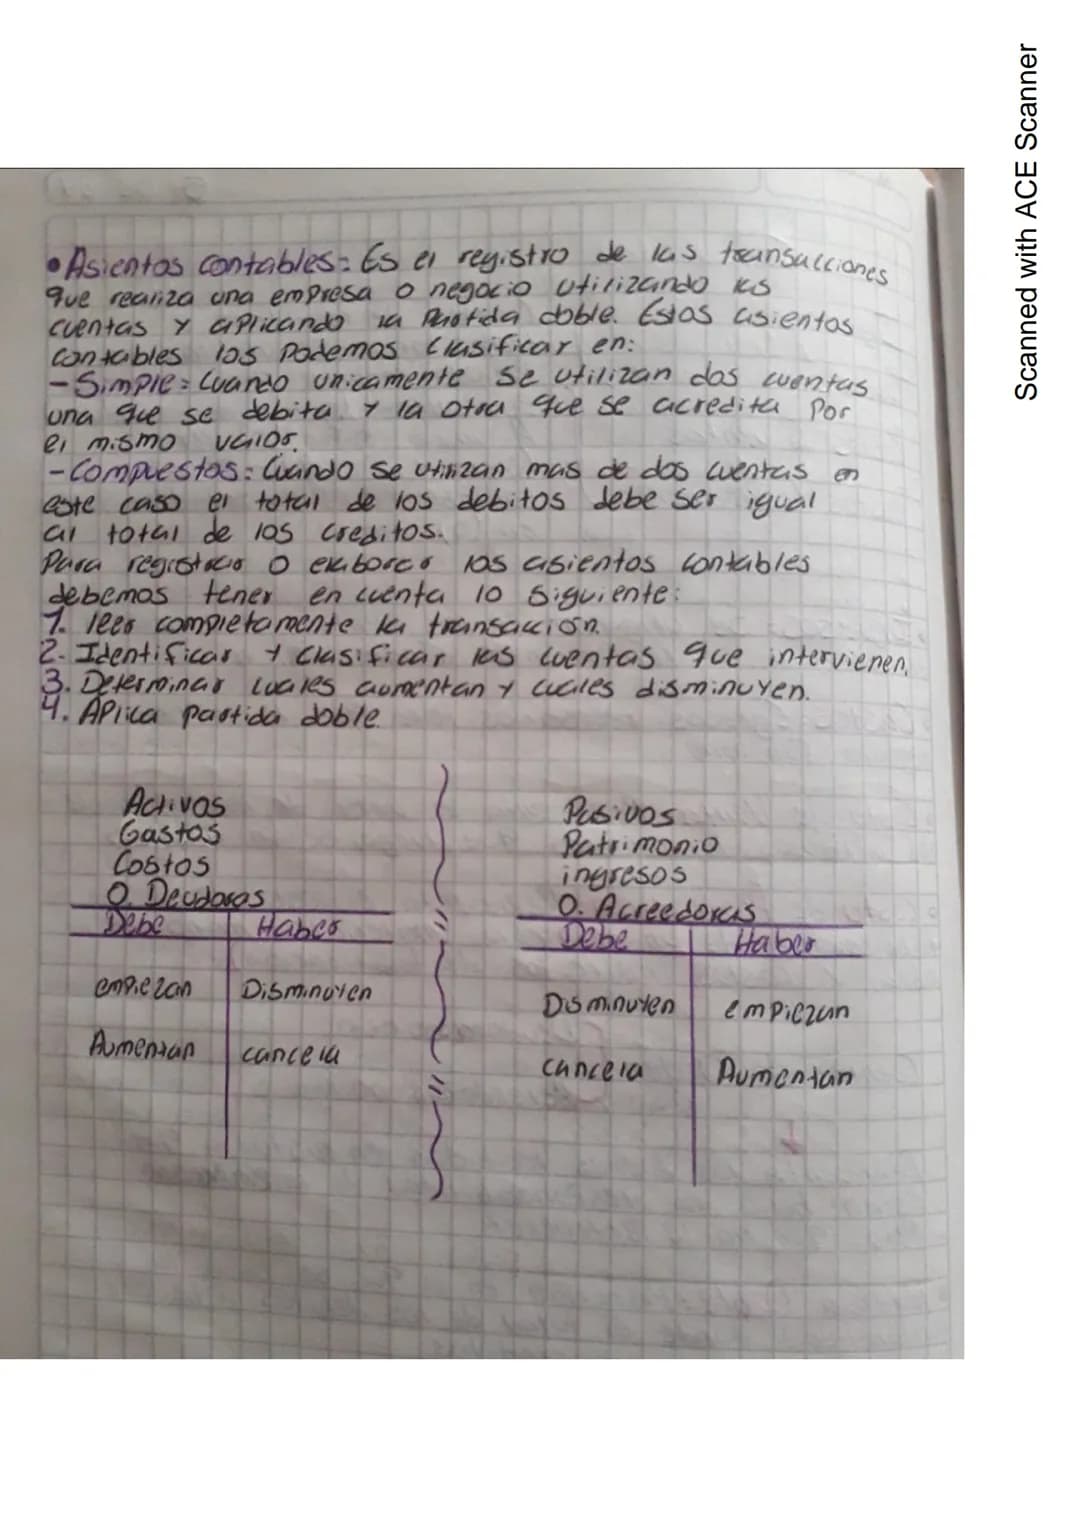 • Asientos contables: Es el registro de las transacciones
que realiza una empresa o negocio utilizando las
cuentas y aplicando la Partida doble. Estos asientos
contables los Podemos Clasificar en:
- Simple: Cuando unicamente se utilizan dos cuentas
una que se debita y la otra que se acredita Por
el mismo valor.
- Compuestos: Cuando se utilizan mas de dos cuentas en
este caso el total de los debitos debe ser igual
al total de los creditos.
Para registrar o elaborar los asientos contables
debemos tener en cuenta lo siguiente:
1. leer completamente la transacción.
2. Identificar y Clasificar las cuentas que intervienen.
3. Determinar cuales aumentan y cuales disminuyen.
4. Aplica partida doble.
Activos
Gastos
Costos
O. Deudoras
Debe Haber
empiezan Disminuyen
Aumentan cancela
Pasivos
Patrimonio
ingresos
O. Acreedoras
Debe Haber
Disminuyen empiezan
cancela Aumentan
Scanned with ACE Scanner